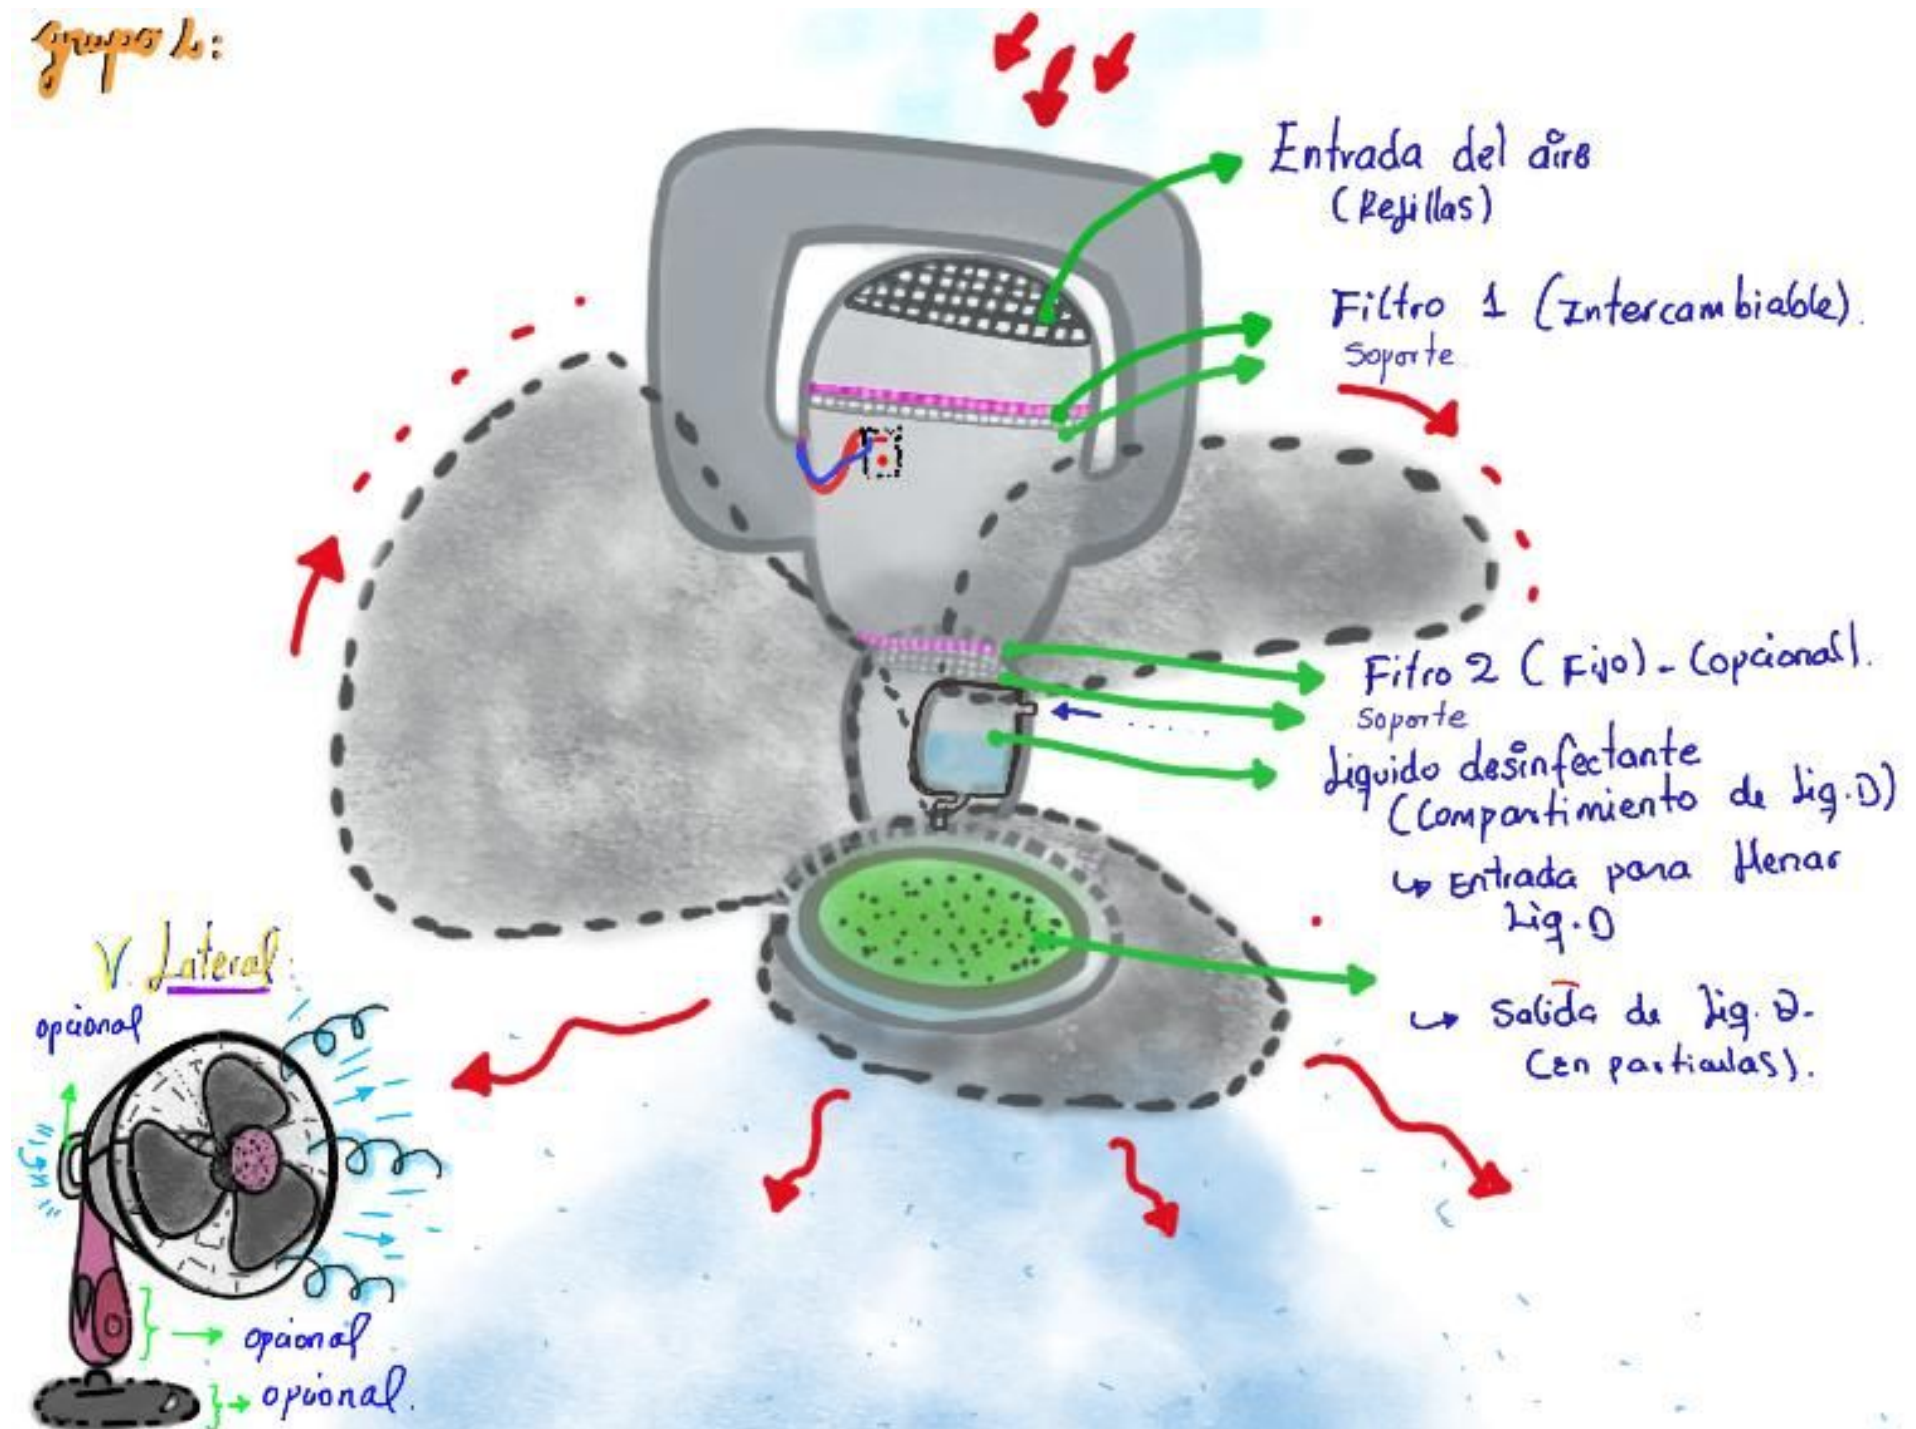 grupo 2:
Entrada del aire
(Rejillas)
Filtro 1 (Intercambiable).
Soporte
Fitro 2 (Fijo) - (opcional).
Soporte
Liquido desinfectante
(Compartimiento de Liq.D)
↳ Entrada para llenar
Liq.D
↳ Salida de Liq.D.
(En particulas).
V. Lateral.
opcional
opcional
opcional.